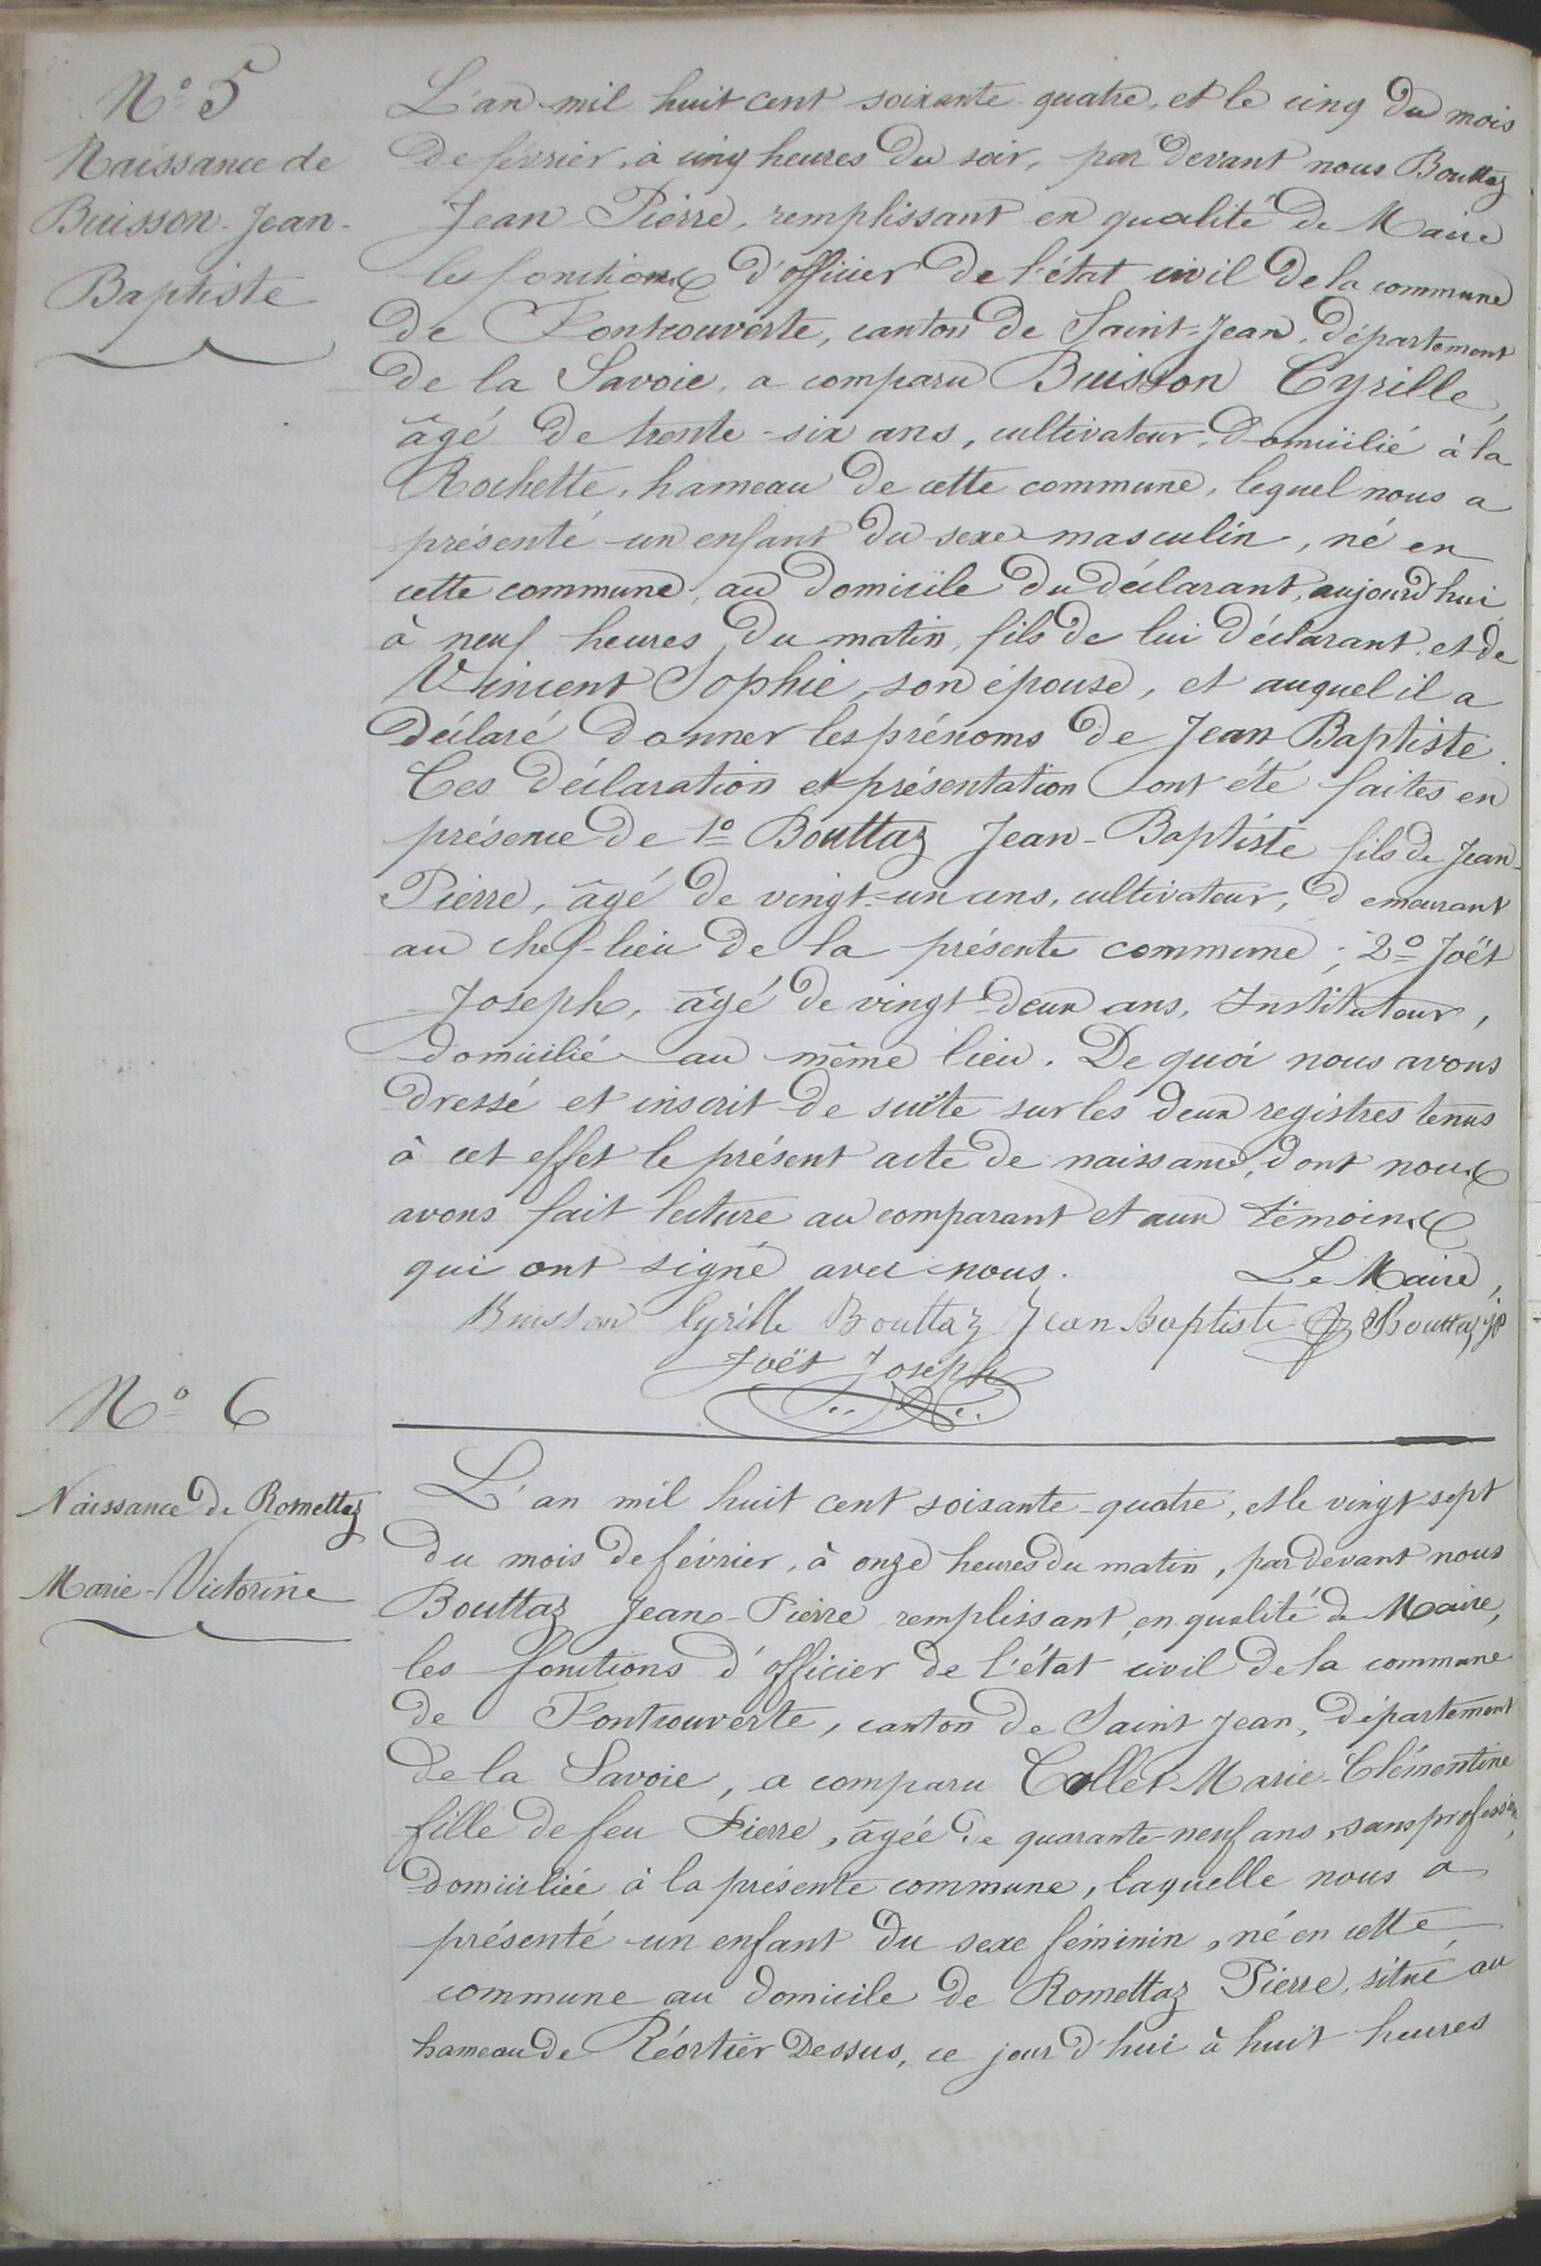 N° 5
Naissance de
Buisson Jean-
Baptiste
L'an mil huit cent soixante quatre, et le cinq du mois
de février, à cinq heures du soir, par devant nous Bouttaz
Jean Pierre, remplissant en qualité de Maire
les fonctions d'officier de l'état civil de la commune
de Fontcouverte, canton de Saint-Jean, département
de la Savoie, a comparu Buisson Cyrille,
âgé de trente-six ans, cultivateur, domicilié à la
Rochette, hameau de cette commune, lequel nous a
présenté un enfant du sexe masculin, né en
cette commune, au domicile du déclarant, aujourd'hui
à neuf heures du matin, fils de lui déclarant et de
Vincent Sophie, son épouse, et auquel il a
déclaré donner les prénoms de Jean Baptiste.
Ces déclaration et présentation ont été faites en
présence de 1° Bouttaz Jean-Baptiste fils de Jean-
Pierre, âgé de vingt-un ans, cultivateur, demeurant
au chef-lieu de la présente commune; 2° Joët
Joseph, âgé de vingt-deux ans, Instituteur,
domicilié au même lieu. De quoi nous avons
dressé et inscrit de suite sur les deux registres tenus
à cet effet le présent acte de naissance, dont nous
avons fait lecture au comparant et aux témoins
qui ont signé avec nous. Le Maire,
Buisson Cyrille Bouttaz Jean Baptiste Bouttaz jp
Joët Joseph
N° 6
Naissance de Romettaz
Marie-Victorine
L'an mil huit cent soixante-quatre, et le vingt sept
du mois de février, à onze heures du matin, par devant nous
Bouttaz Jean-Pierre remplissant, en qualité de Maire,
les fonctions d'officier de l'état civil de la commune
de Fontcouverte, canton de Saint Jean, département
de la Savoie, a comparu Collet Marie-Clémentine
fille de feu Pierre, âgée de quarante-neuf ans, sans profession,
domiciliée à la présente commune, laquelle nous a
présenté un enfant du sexe féminin, né en cette
commune au domicile de Romettaz Pierre, situé au
hameau de Réortier Dessus, ce jour d'hui à huit heures